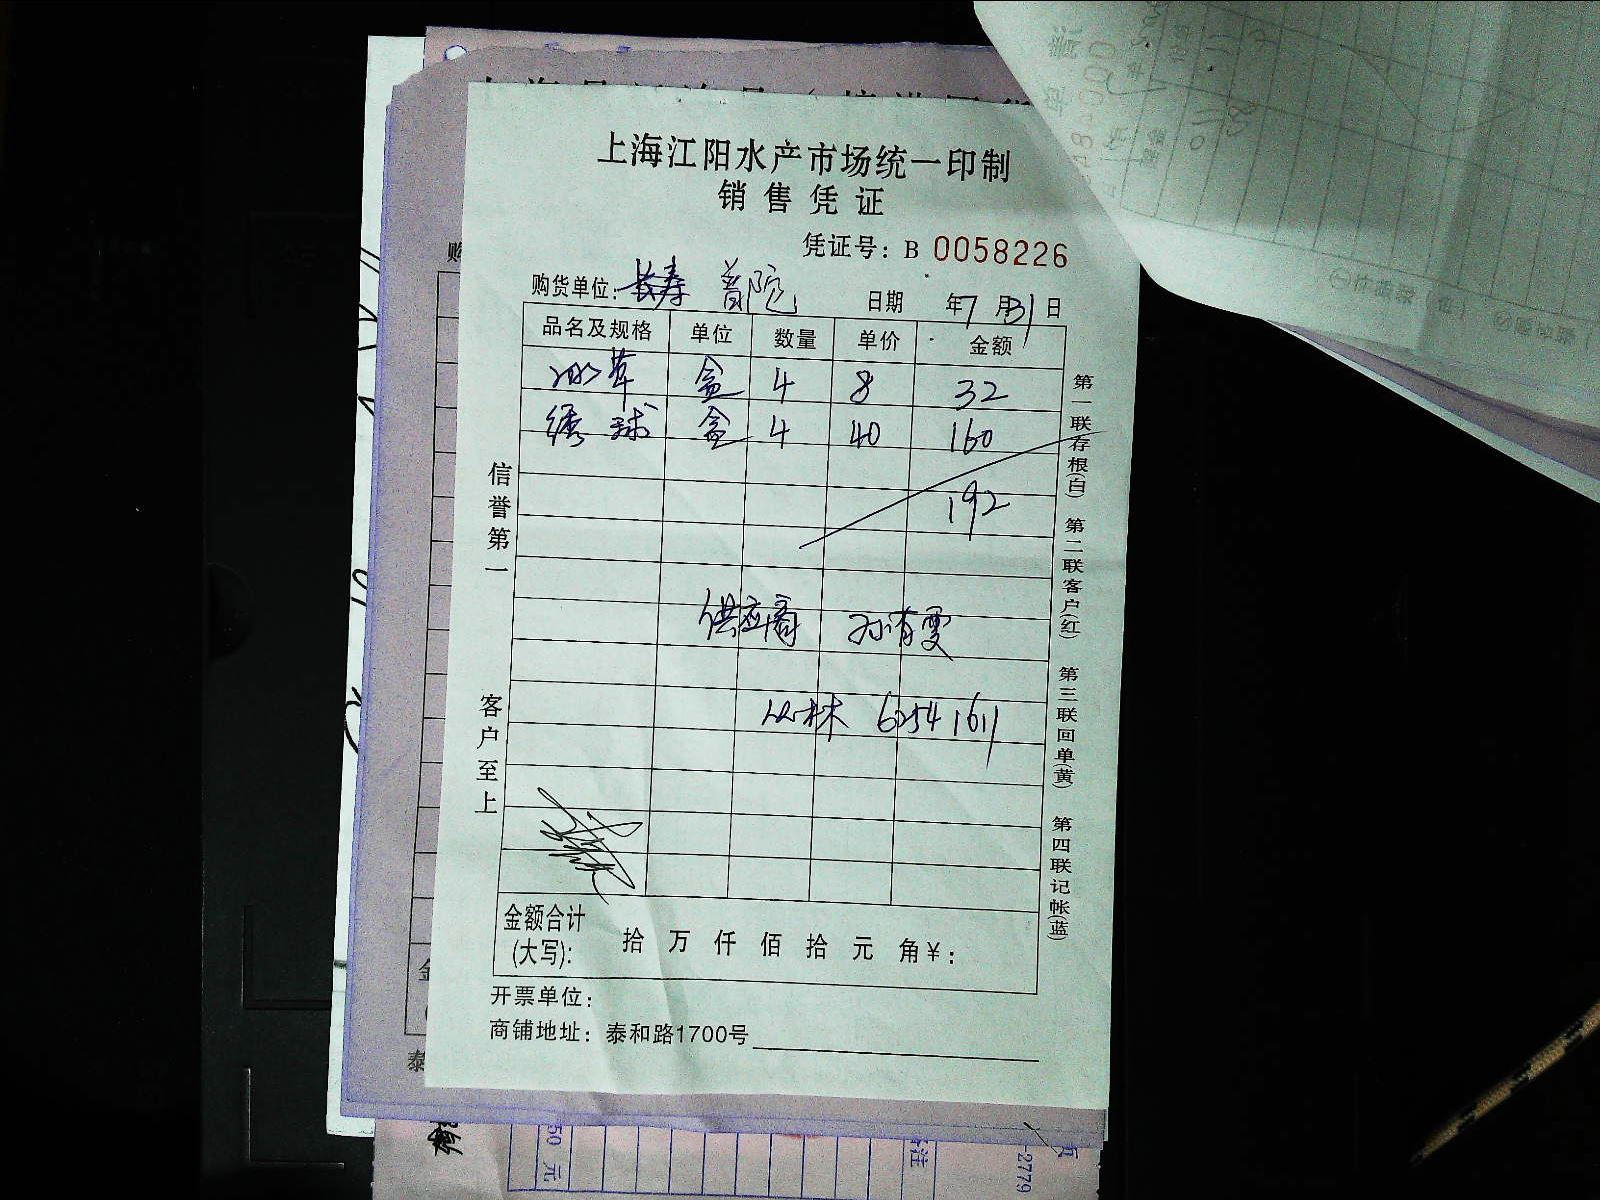 上海江阳水产市场统一印制
销售凭证
凭证号：B 0058226
购货单位：长寿 普陀 日期 年7月31日
品名及规格 单位 数量 单价 金额
水草 盒 4 8 32
绣球 盒 4 40 160
192
供应商 孙有雯
丛林 62541611
信誉第一
客户至上
第一联存根(白) 第二联客户(红) 第三联回单(黄) 第四联记帐(蓝)
金额合计
(大写)： 拾 万 仟 佰 拾 元 角 ¥：
开票单位：
商铺地址：泰和路1700号
购
金
泰
50 元
-2779